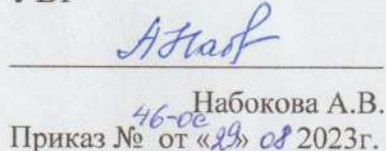 Набокова А.В.
Приказ № 46-ос от «29» 08 2023г.